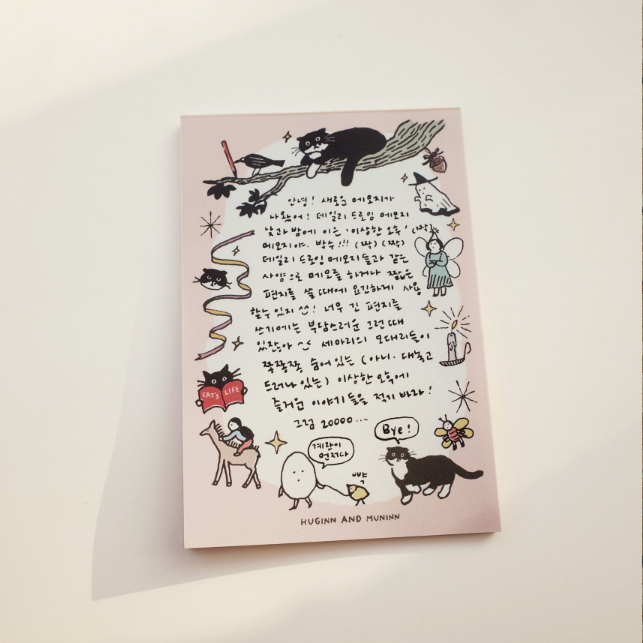 안녕! 새로운 메모지가
나왔어! 데일리 드로잉 메모지
낮과 밤에 이은 '이상한 오후' (짝)
메모지야. 박수!!! (짝) (짝)
데일리 드로잉 메모지들과 같은
사양으로 메모를 하거나 짧은
편지를 쓸 때에 요긴하게 사용
할 수 있지 ^^! 너무 긴 편지를
쓰기에는 부담스러운 그런 때
있잖아 ^^ 세 마리의 모대리들이
쭉쭉쭉 숨어 있는 (아니. 대놓고
드러나 있는) 이상한 오후에
즐거운 이야기들을 적기 바라!
그럼 20000...
CAT'S LIFE
Bye!
계란이
먼저다
빡
HUGINN AND MUNINN